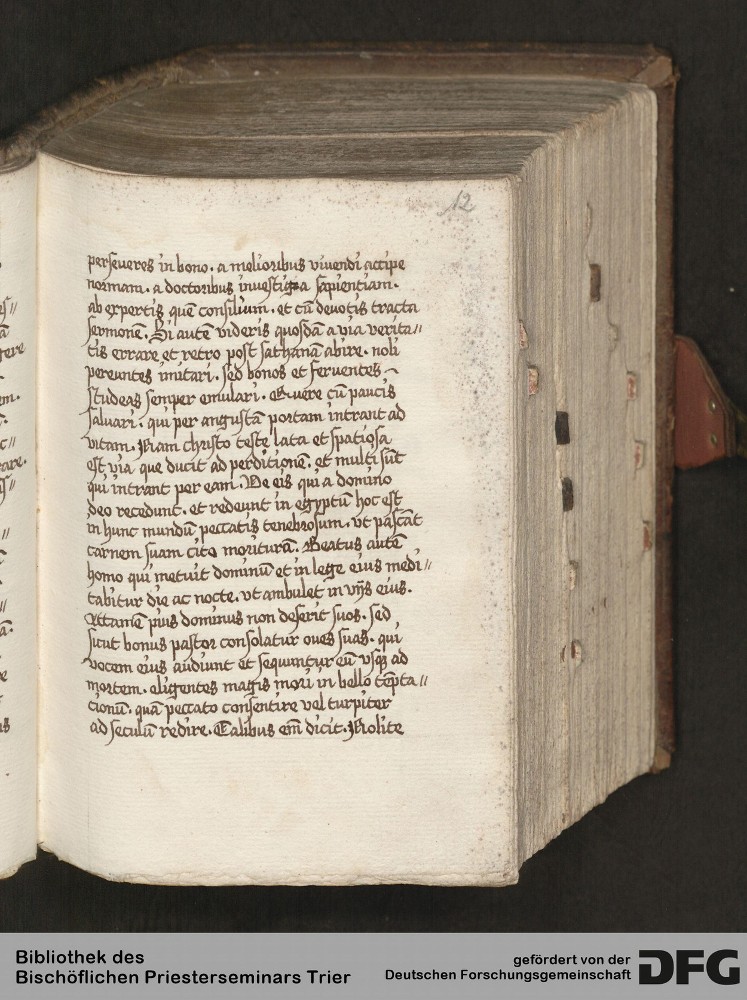 12
perseueres in bono. a melioribus viuendi accipe
normam. a doctoribus inuestiga sapientiam.
ab expertis quē consilium. et cū deuotis tracta
sermonē. Si autē videris quosdā a via verita//
tis errare et retro post sathanā abire. noli
pereuntes imitari. sed bonos et feruentes
studeas semper emulari. Quere cū paucis
saluari. qui per angustā portam intrant ad
vitam. Nam christo teste lata et spatiosa
est via que ducit ad perditionē. et multi sūt
qui intrant per eam. Ve eis qui a domino
deo recedunt. et redeunt in egyptū hoc est
in hunc mundū peccatis tenebrosum. vt pascāt
carnem suam cito moriturā. Beatus autē
homo qui metuit dominū et in lege eius medi//
tabitur die ac nocte. vt ambulet in vijs eius.
Attamē pius dominus non deserit suos. sed
sicut bonus pastor consolatur oues suas. qui
vocem eius audiunt et sequuntur eū vsqꝫ ad
mortem. eligentes magis mori in bello tēpta//
tionū. quā peccato consentire vel turpiter
ad seculū redire. Talibus em̄ dicit. Nolite
Bibliothek des
Bischöflichen Priesterseminars Trier
gefördert von der
Deutschen Forschungsgemeinschaft
DFG